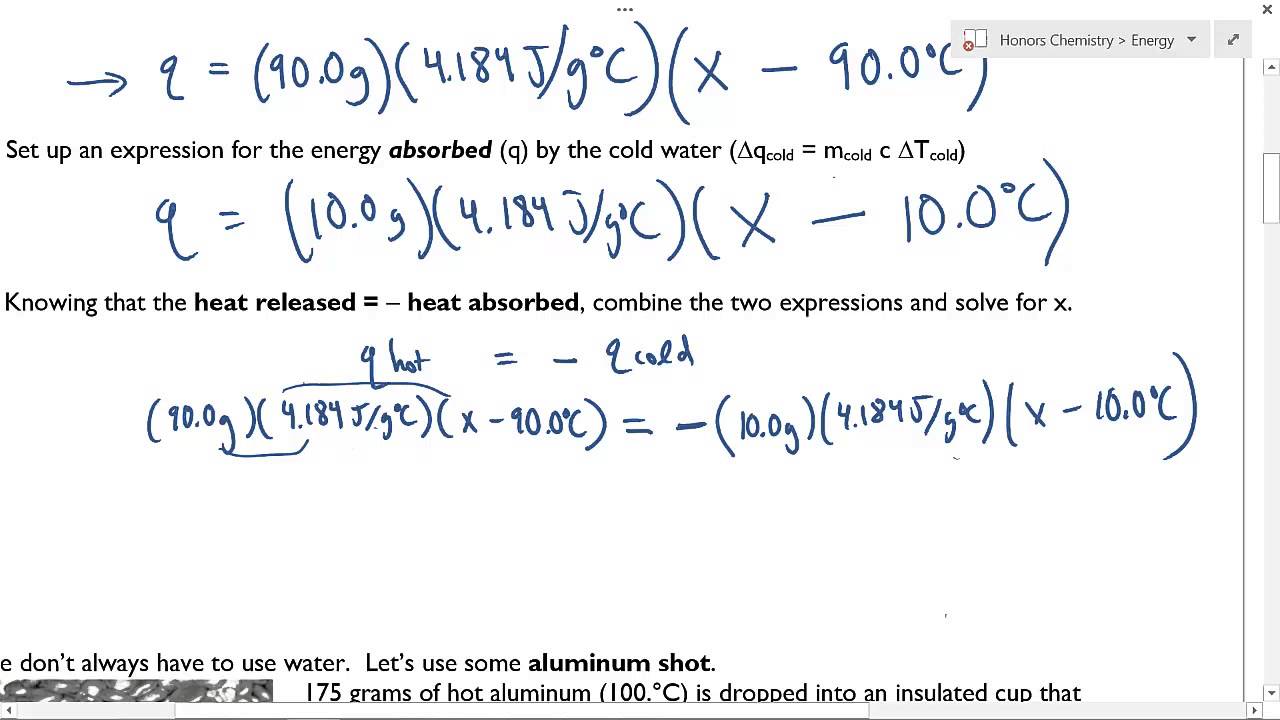 ...
Honors Chemistry > Energy
→ q = (90.0g)(4.184 J/g°C)(x − 90.0°C)
Set up an expression for the energy absorbed (q) by the cold water (∆qcold = mcold c ∆Tcold)
q = (10.0g)(4.184 J/g°C)(x − 10.0°C)
Knowing that the heat released = – heat absorbed, combine the two expressions and solve for x.
q hot = − q cold
(90.0g)(4.184 J/g°C)(x − 90.0°C) = −(10.0g)(4.184 J/g°C)(x − 10.0°C)
e don't always have to use water. Let's use some aluminum shot.
175 grams of hot aluminum (100.°C) is dropped into an insulated cup that